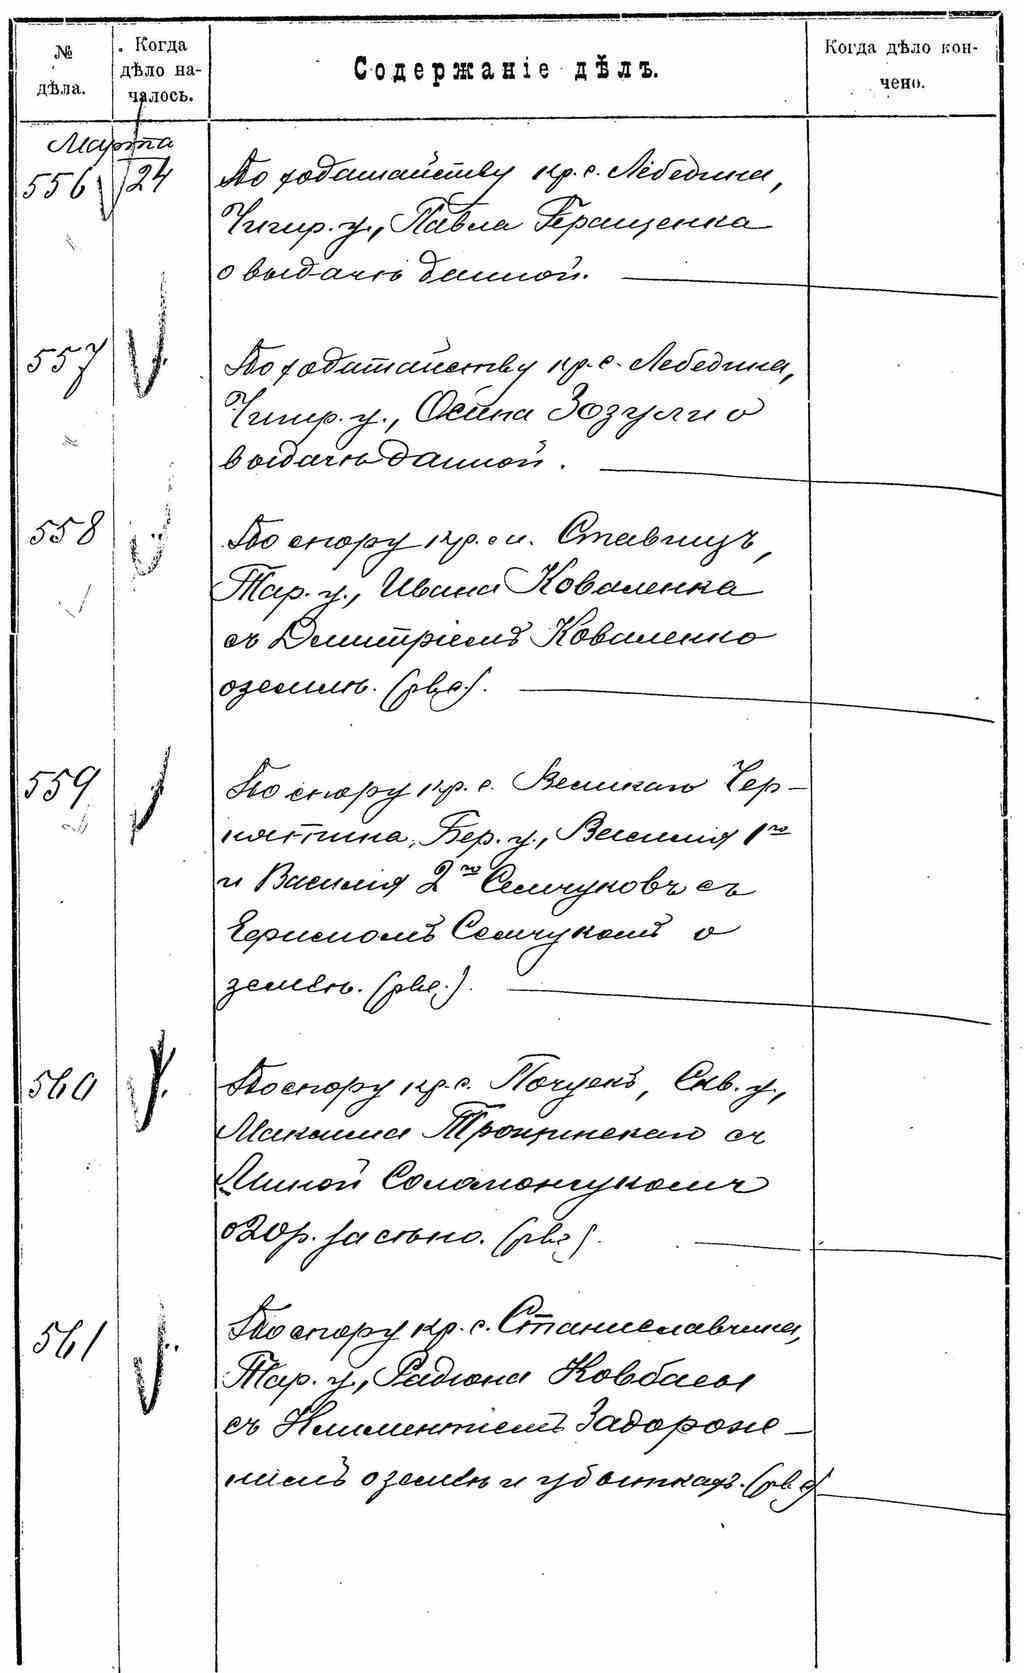 № дѣла.
Когда дѣло началось.
Содержаніе дѣлъ.
Когда дѣло кончено.
Марта
556 24 По ходатайству кр. с. Лебедина,
Чигир. у., Павла Геращенка
о выдачѣ данной.
557 По ходатайству кр. с. Лебедина,
Чигир. у., Осипа Зозули о
выдачѣ данной.
558 По спору кр. с. Ставищъ,
Тар. у., Ивана Коваленка
съ Дмитріемъ Коваленко
о землѣ.
559 По спору кр. с. Великаго Чер-
нятина, Бер. у., Василія 1го
и Василія 2го Семчуковъ съ
Ефимомъ Семчукомъ о
землѣ.
560 По спору кр. с. Почуекъ, Скв. у.,
Максима Трощинскаго съ
Миной Соломончукомъ
о 20 р. за сѣно.
561 По спору кр. с. Станиславчика,
Тар. у., Радіона Ковбасы
съ Климентіемъ Задорож-
нимъ о землѣ и убыткахъ.